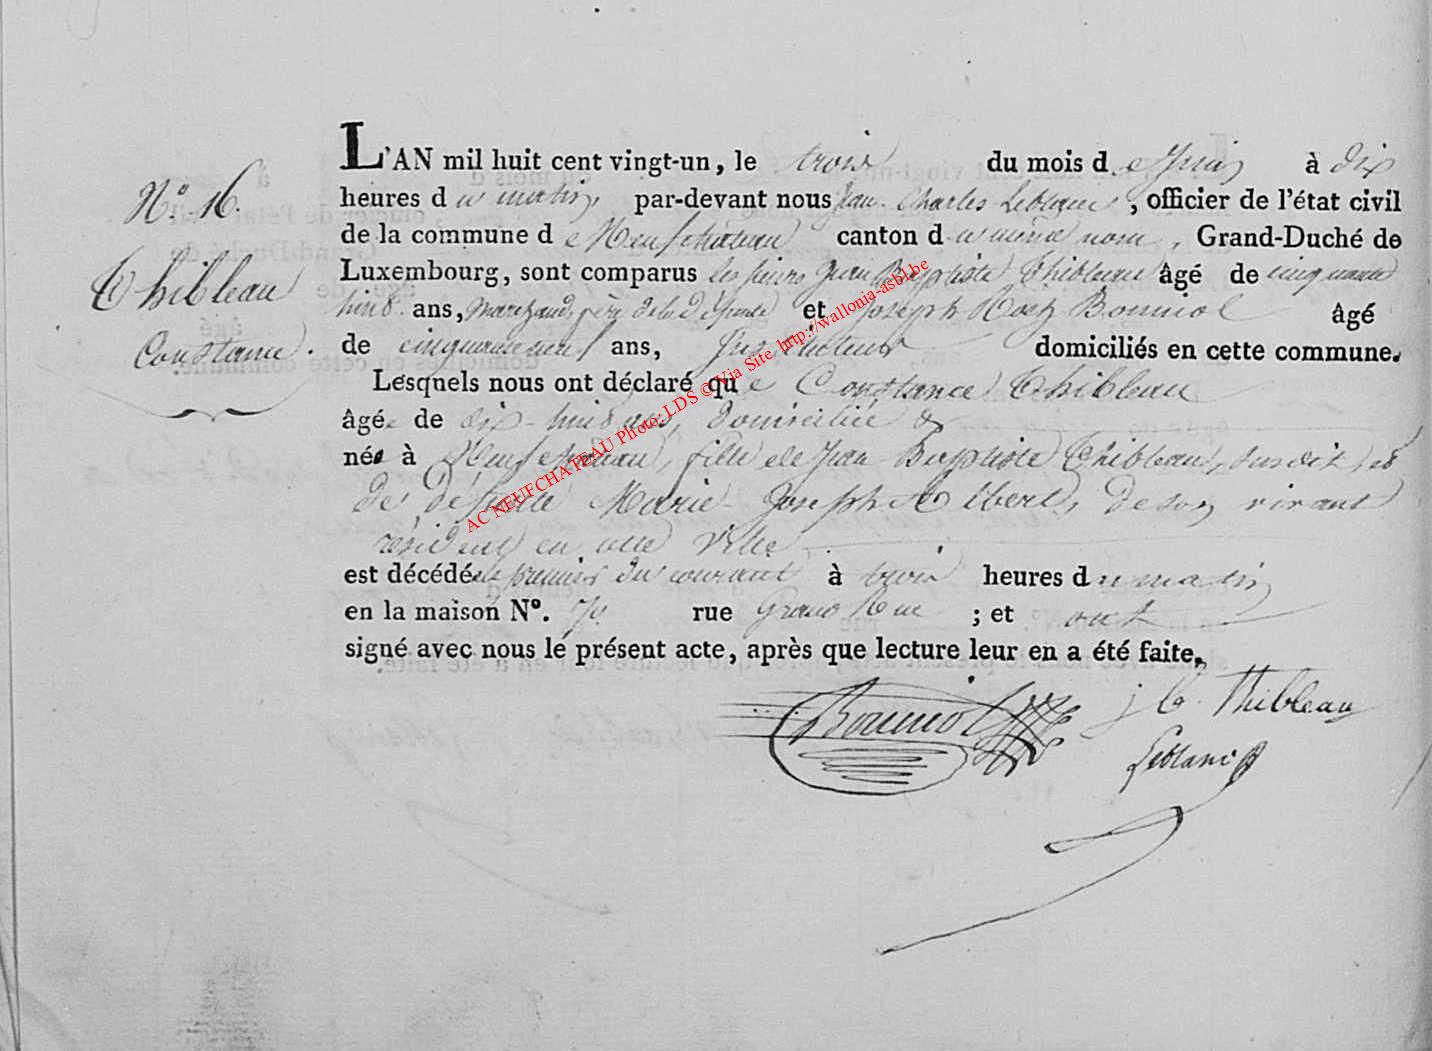 N.º 16.
Thibleau
Constance.
L'AN mil huit cent vingt-un, le trois du mois de Juin à dix
heures du matin, par-devant nous Jean Charles Leblanc, officier de l'état civil
de la commune de Neufchâteau canton du même nom, Grand-Duché de
Luxembourg, sont comparus les sieurs Jean Baptiste Thibleau âgé de cinquante
huit ans, Marchand, père de la défunte et Joseph Bonniol âgé
de ans, Instituteur domiciliés en cette commune.
Lesquels nous ont déclaré que Constance Thibleau
âgée de dix-huit ans, domiciliée &
née à Neufchateau, fille de Jean Baptiste Thibleau, susdit, et
de défunte Marie Joseph Albert, de son vivant
résident en cette ville
est décédée le premier du courant à trois heures du matin
en la maison Nº. 70 rue Grand Rue ; et ont
signé avec nous le présent acte, après que lecture leur en a été faite,
Bonniol j b. Thibleau
Leblanc
AC NEUFCHATEAU Photo: LDS © Via Site http://wallonia-asbl.be